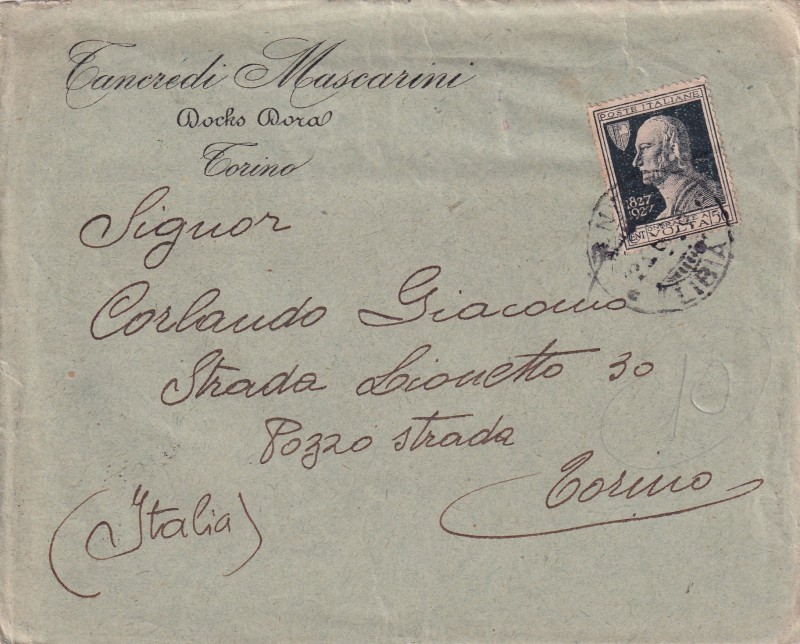 Tancredi Mascarini
Docks Dora
Torino
POSTE ITALIANE
1827
1927
CENT VOLTA 50
LIBIA
Signor
Corlando Giacomo
Strada Lionetto 30
Pozzo strada
Torino
(Italia)
10